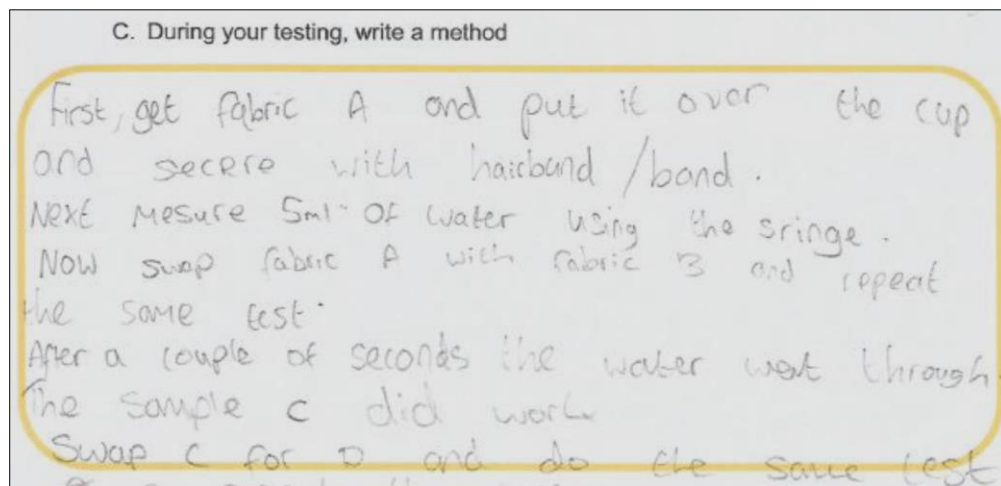 C. During your testing, write a method
First, get fabric A and put it over the cup
and secere with hairband /band.
Next mesure 5ml of water using the sringe.
Now swap fabric A with fabric B and repeat
the same test.
After a couple of seconds the water went through.
The sample C did work
Swap C for D and do the same test